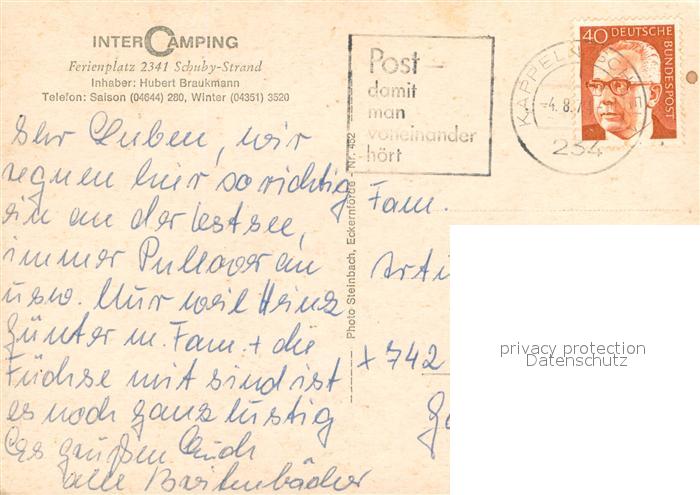 INTER CAMPING
Ferienplatz 2341 Schuby-Strand
Inhaber: Hubert Braukmann
Telefon: Saison (04644) 280, Winter (04351) 3520
Post-
damit
man
voneinander
hört
KAPPELN
-4.8.
234
40 DEUTSCHE
BUNDESPOST
Ihr Lieben, wir
regnen hier so richtig
ein an der Ostsee,
immer Pullover an
usw. Nur weil Heinz
Günter m. Fam. + die
Füchse mit sind ist
es noch ganz lustig
Es grüßen Euch
alle Breitenbächer
Photo Steinbach, Eckernförde - Nr. 452
Fam.
742
privacy protection
Datenschutz